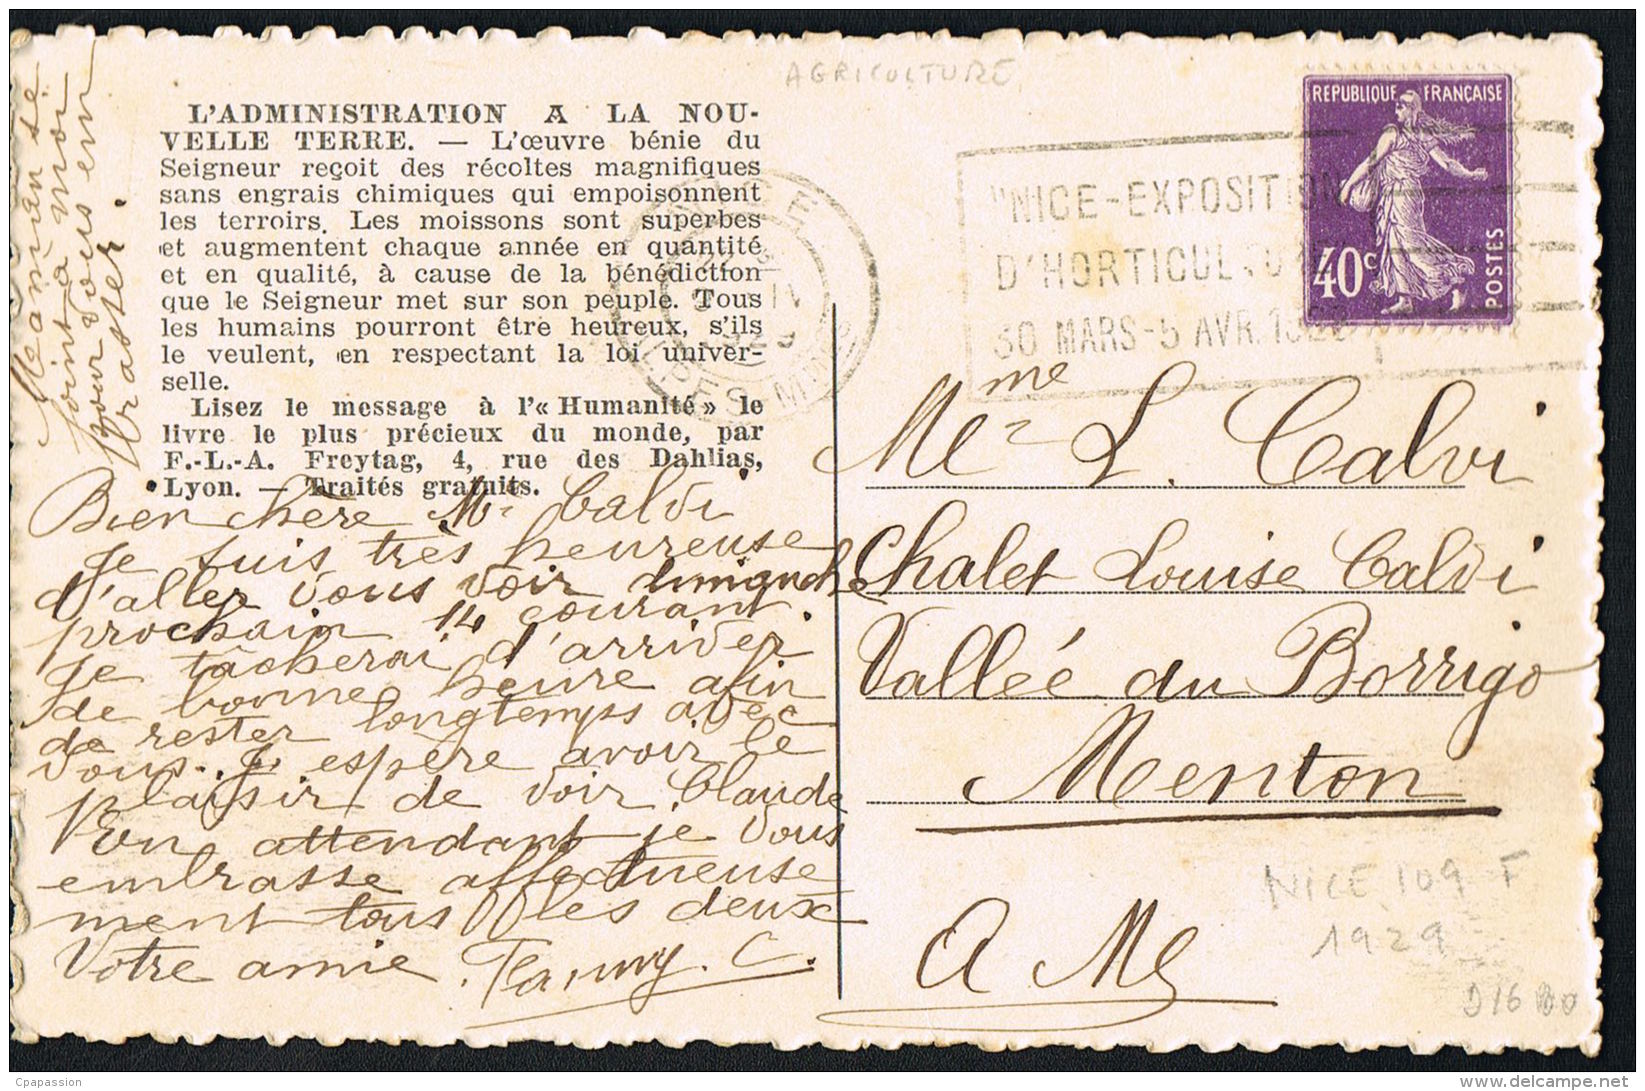 AGRICULTURE
L'ADMINISTRATION A LA NOU-
VELLE TERRE. — L'œuvre bénie du
Seigneur reçoit des récoltes magnifiques
sans engrais chimiques qui empoisonnent
les terroirs. Les moissons sont superbes
et augmentent chaque année en quantité
et en qualité, à cause de la bénédiction
que le Seigneur met sur son peuple. Tous
les humains pourront être heureux, s'ils
le veulent, en respectant la loi univer-
selle.
Lisez le message à l'« Humanité » le
livre le plus précieux du monde, par
F.-L.-A. Freytag, 4, rue des Dahlias,
Lyon. — Traités gratuits.
Maman se
joint à moi
pour vous em
brasser.
Bien chère Me Calvi
Je suis très heureuse
d'aller vous voir dimanche
prochain 14 courant.
Je tâcherai d'arriver
de bonne heure afin
de rester longtemps avec
vous. J'espère avoir le
plaisir de voir Claude
En attendant je vous
embrasse affectueuse
ment tous les deux
Votre amie. Fanny. C.
REPUBLIQUE FRANÇAISE
40c
POSTES
"NICE-EXPOSITION
D'HORTICULTURE
30 MARS-5 AVR. 1929
Mme L. Calvi
Chalet Louise Calvi
Vallée du Borrigo
Menton
A M
NICE 109 F
1929
D16
Cpapassion
delcampe.net